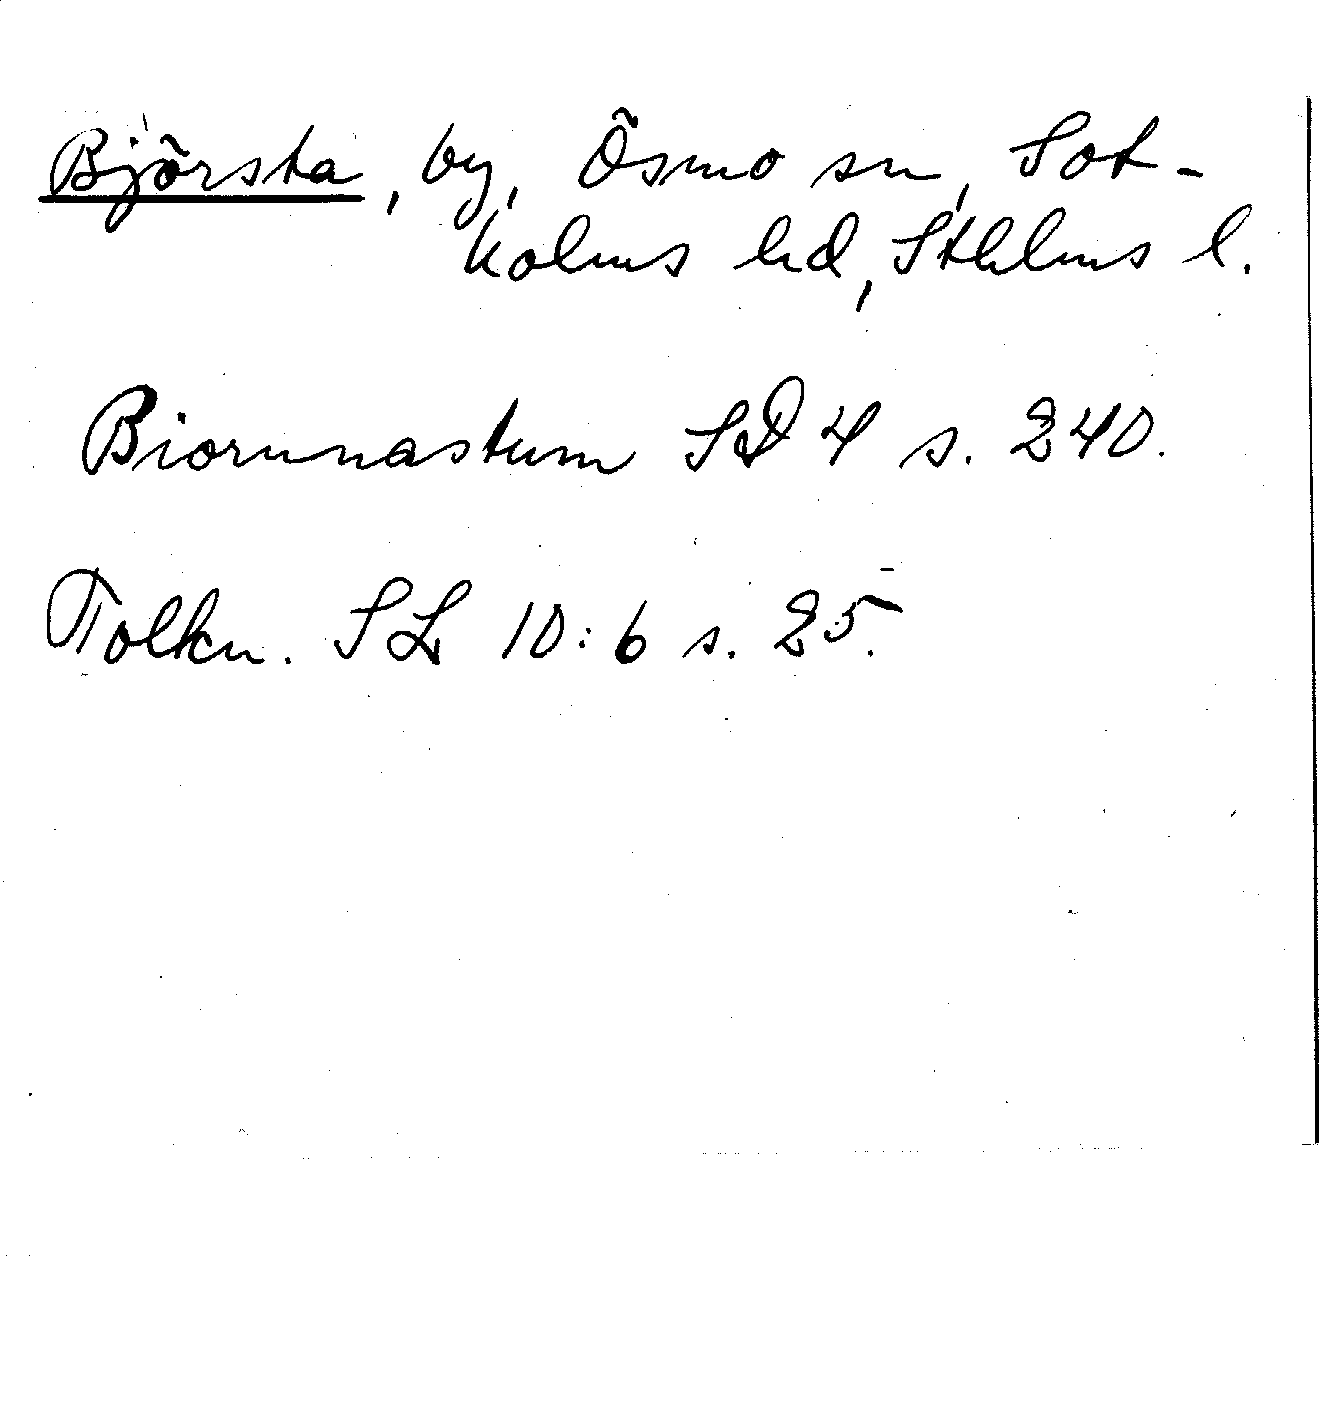 Björsta, by, Ösmo sn, Sot-
holms hd, Sthlms l.
Biornnastum SD 4 s. 240.
Tolkn. SL 10:6 s. 25.